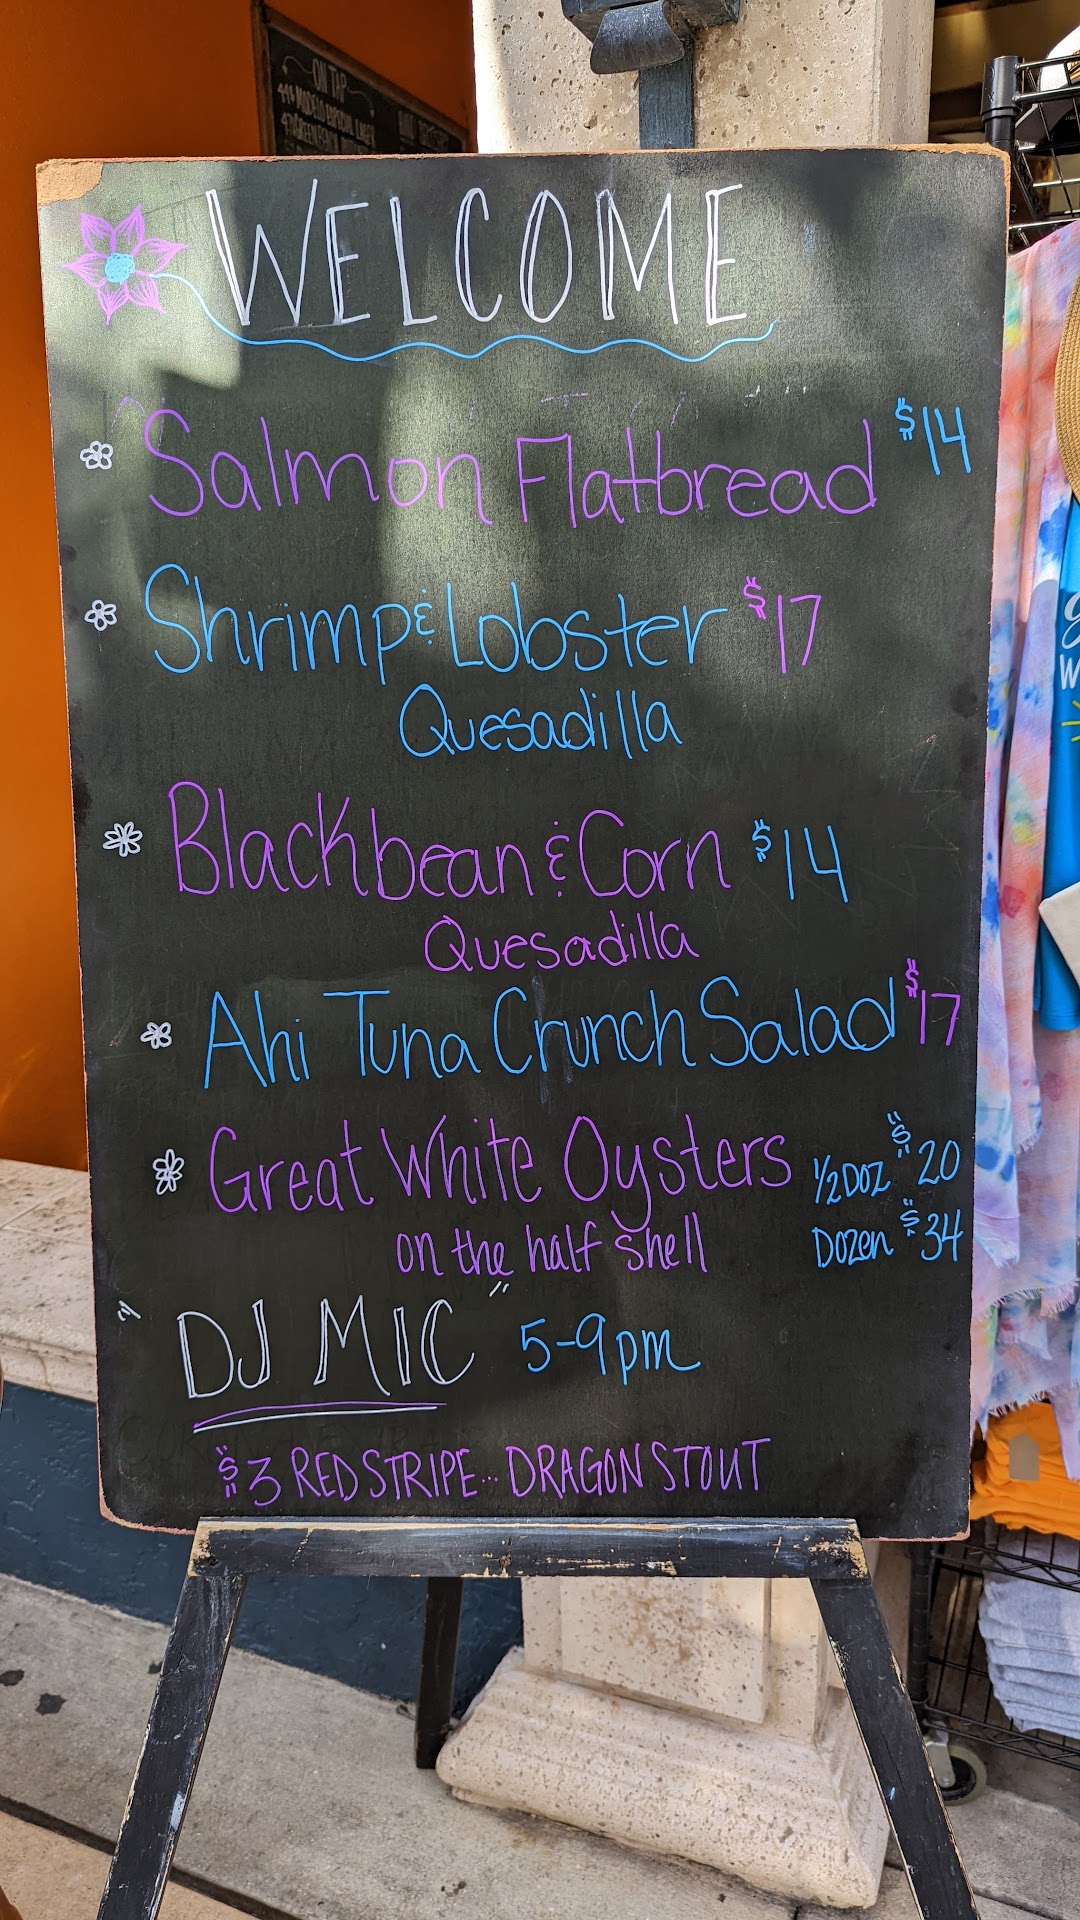 ON TAP
WELCOME
Salmon Flatbread $14
Shrimp & Lobster $17
Quesadilla
Blackbean & Corn $14
Quesadilla
Ahi Tuna Crunch Salad $17
Great White Oysters 1/2 DOZ $20
on the half shell Dozen $34
"DJ MIC" 5-9pm
$3 RED STRIPE... DRAGON STOUT